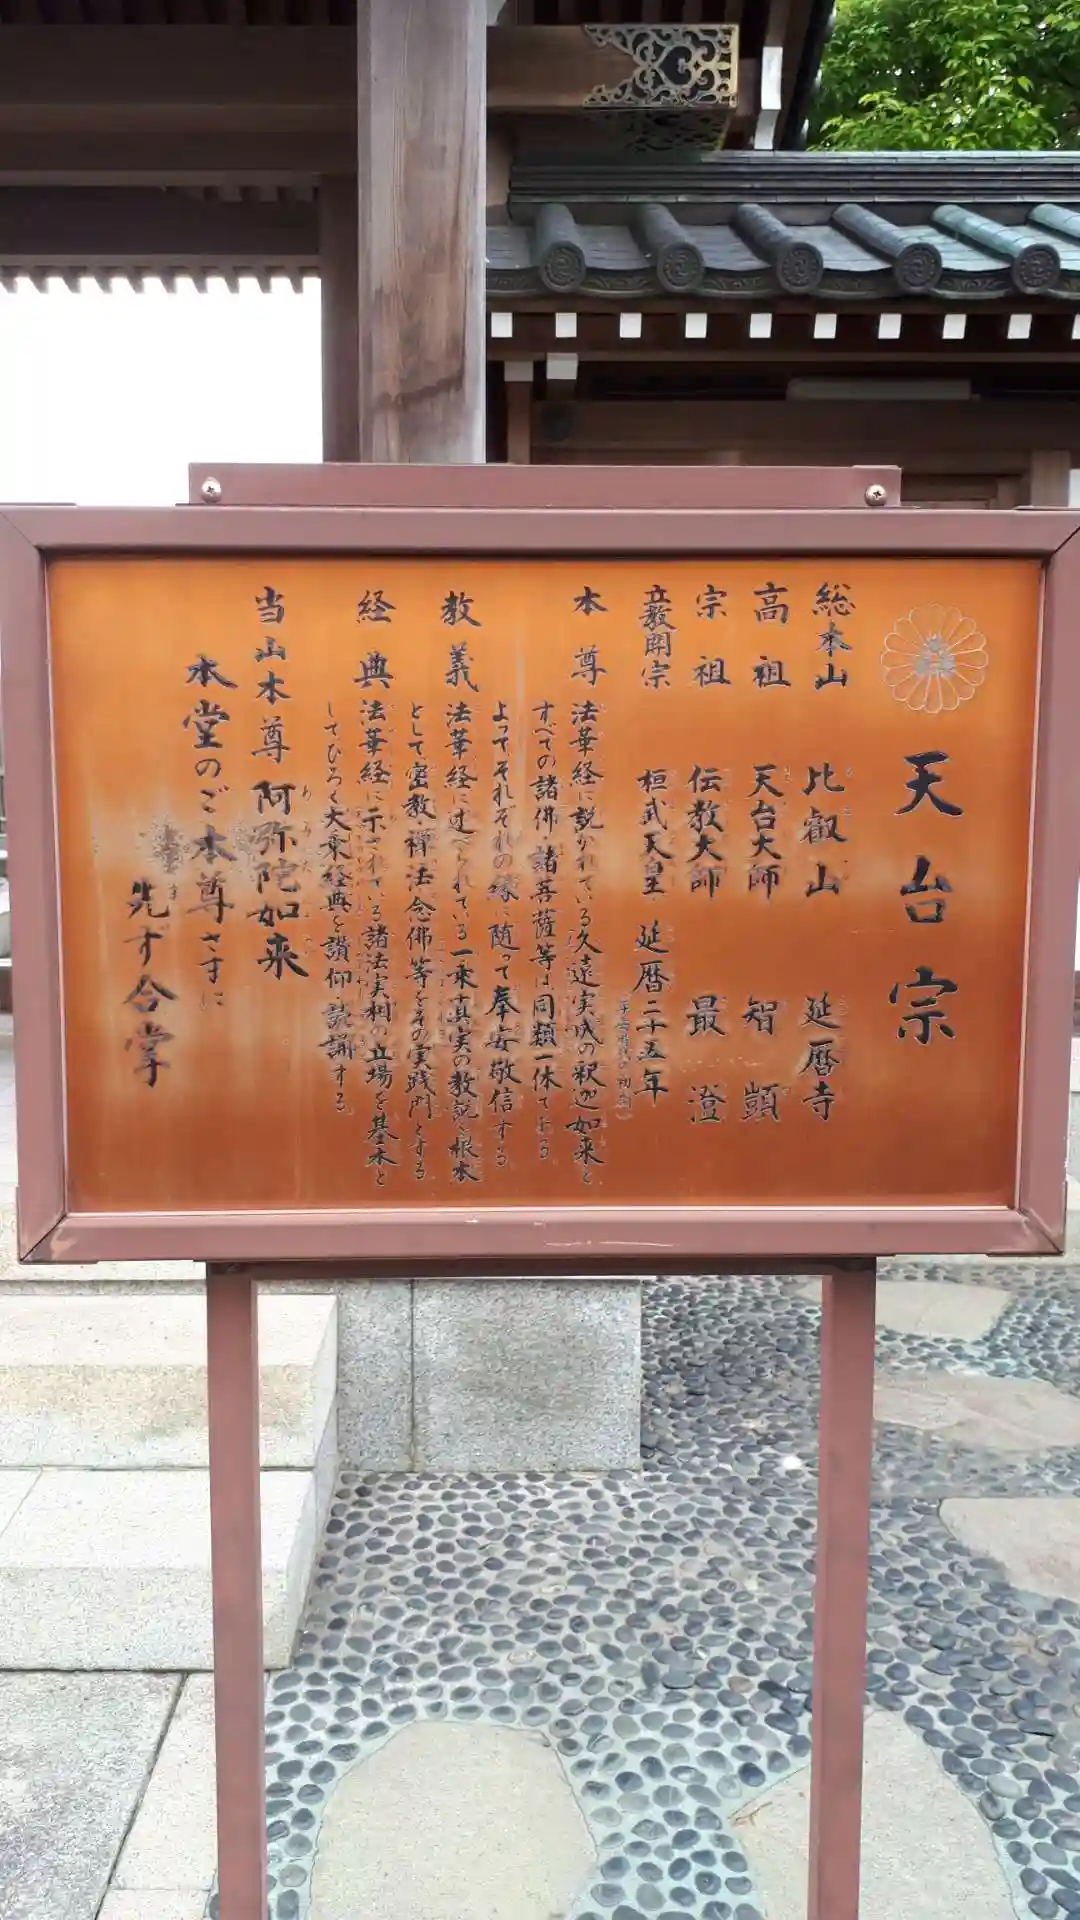 天台宗
総本山 比叡山 延暦寺
高祖 天台大師 智顗
宗祖 伝教大師 最澄
立教開宗 桓武天皇 延暦二十五年
(平安時代の初期)
本尊 法華経に説かれている久遠実成の釈迦如来と
すべての諸佛・諸菩薩等は、同類一体である。
よってそれぞれの縁に随って奉安敬信する。
教義 法華経に述べられている一乗真実の教説を根本
として、密教・禅法・念佛等をその実践門とする。
経典 法華経に示されている諸法実相の立場を基本と
してひろく大乗経典を讃仰・読誦する。
当山本尊 阿弥陀如来
本堂のご本尊さまに
先ず合掌